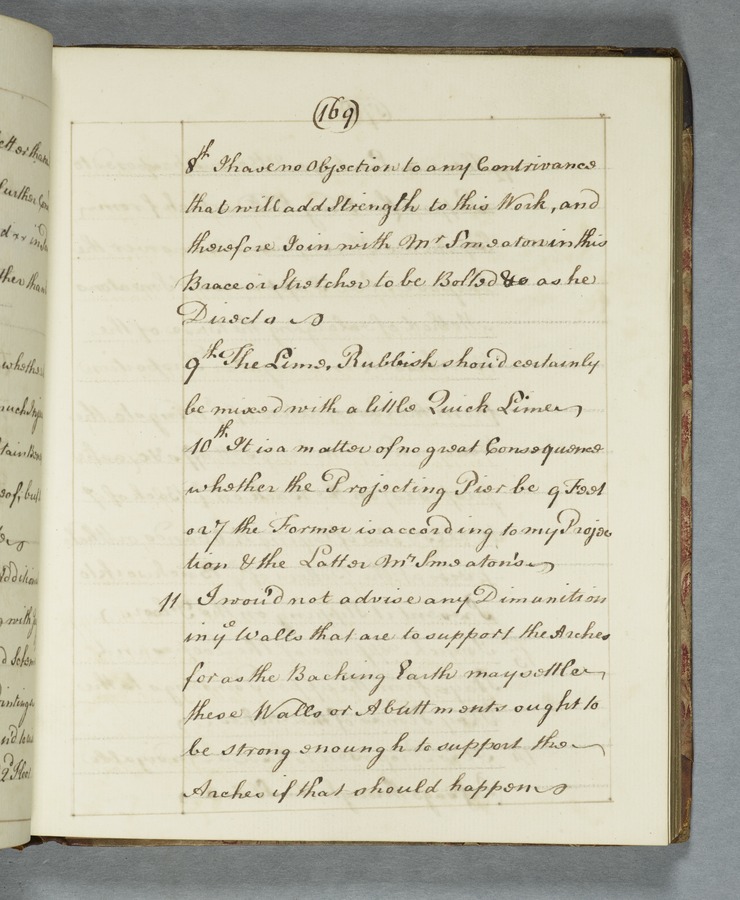 (169)
8th I have no Objection to any Contrivance
that will add Strength to this Work, and
therefore Join with Mr Smeaton in this
Brace or Stretcher to be Bolted &c as he
Directs
9th The Lime, Rubbish shou'd certainly
be mixed with a little Quick Lime
10th It is a matter of no great Consequence
whether the Projecting Pier be 9 Feet
or 7 the Former is according to my Projec
tion & the Latter Mr Smeaton's
11 I wou'd not advise any Dimunition
in ye Walls that are to support the Arches
for as the Backing Earth may settle
these Walls or Abuttments ought to
be strong enoungh to support the
Arches if that should happen